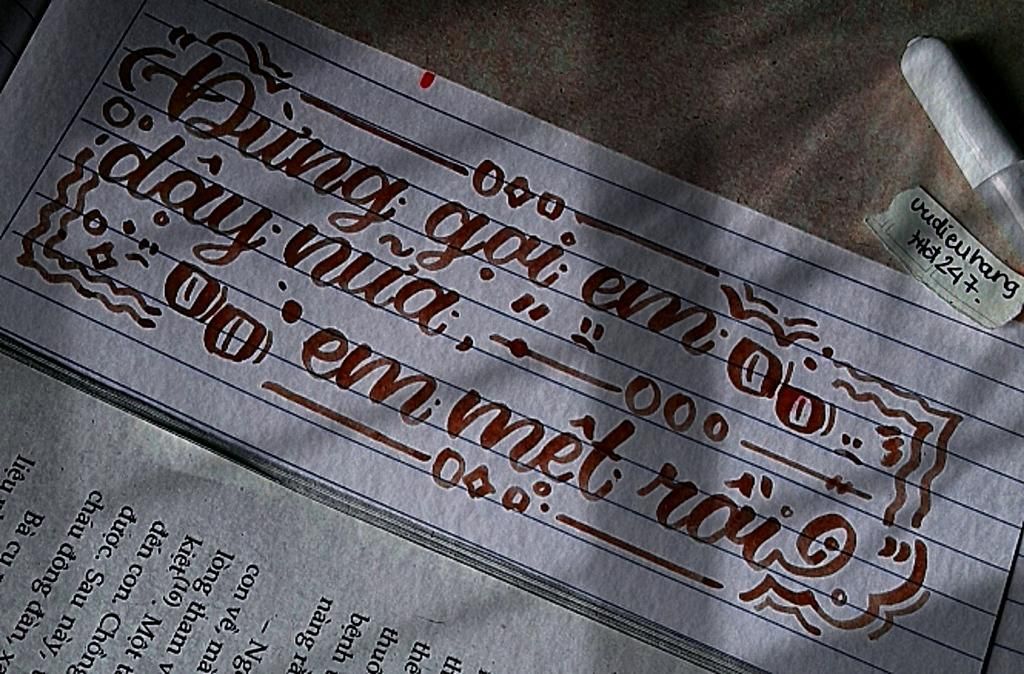 Đừng gọi em
dậy nữa,
em mệt rồi
vudieuhang
liệu
Bà cụ
cháu đông đàn,
được. Sau này,
đến con. Chồng
kiệt(16). Một
lòng than
con về, mà
- Ng
nàng
bệnh
thuố
thế
th